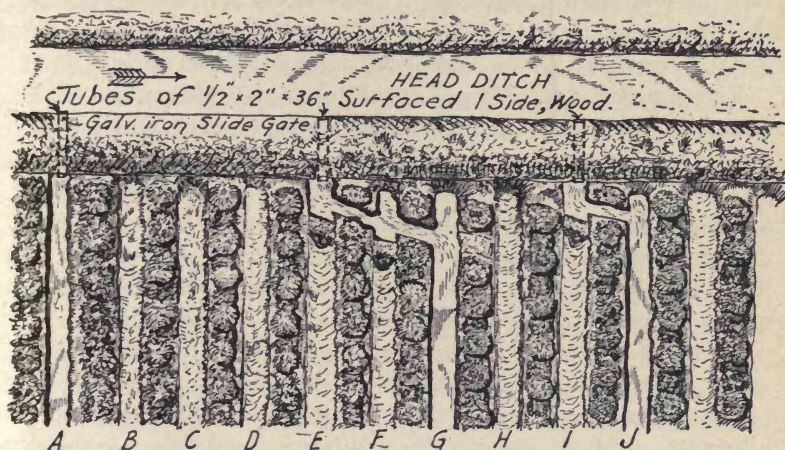 HEAD DITCH
Tubes of 1/2" x 2" x 36" Surfaced 1 Side, Wood.
Galv. iron Slide Gate
A B C D E F G H I J